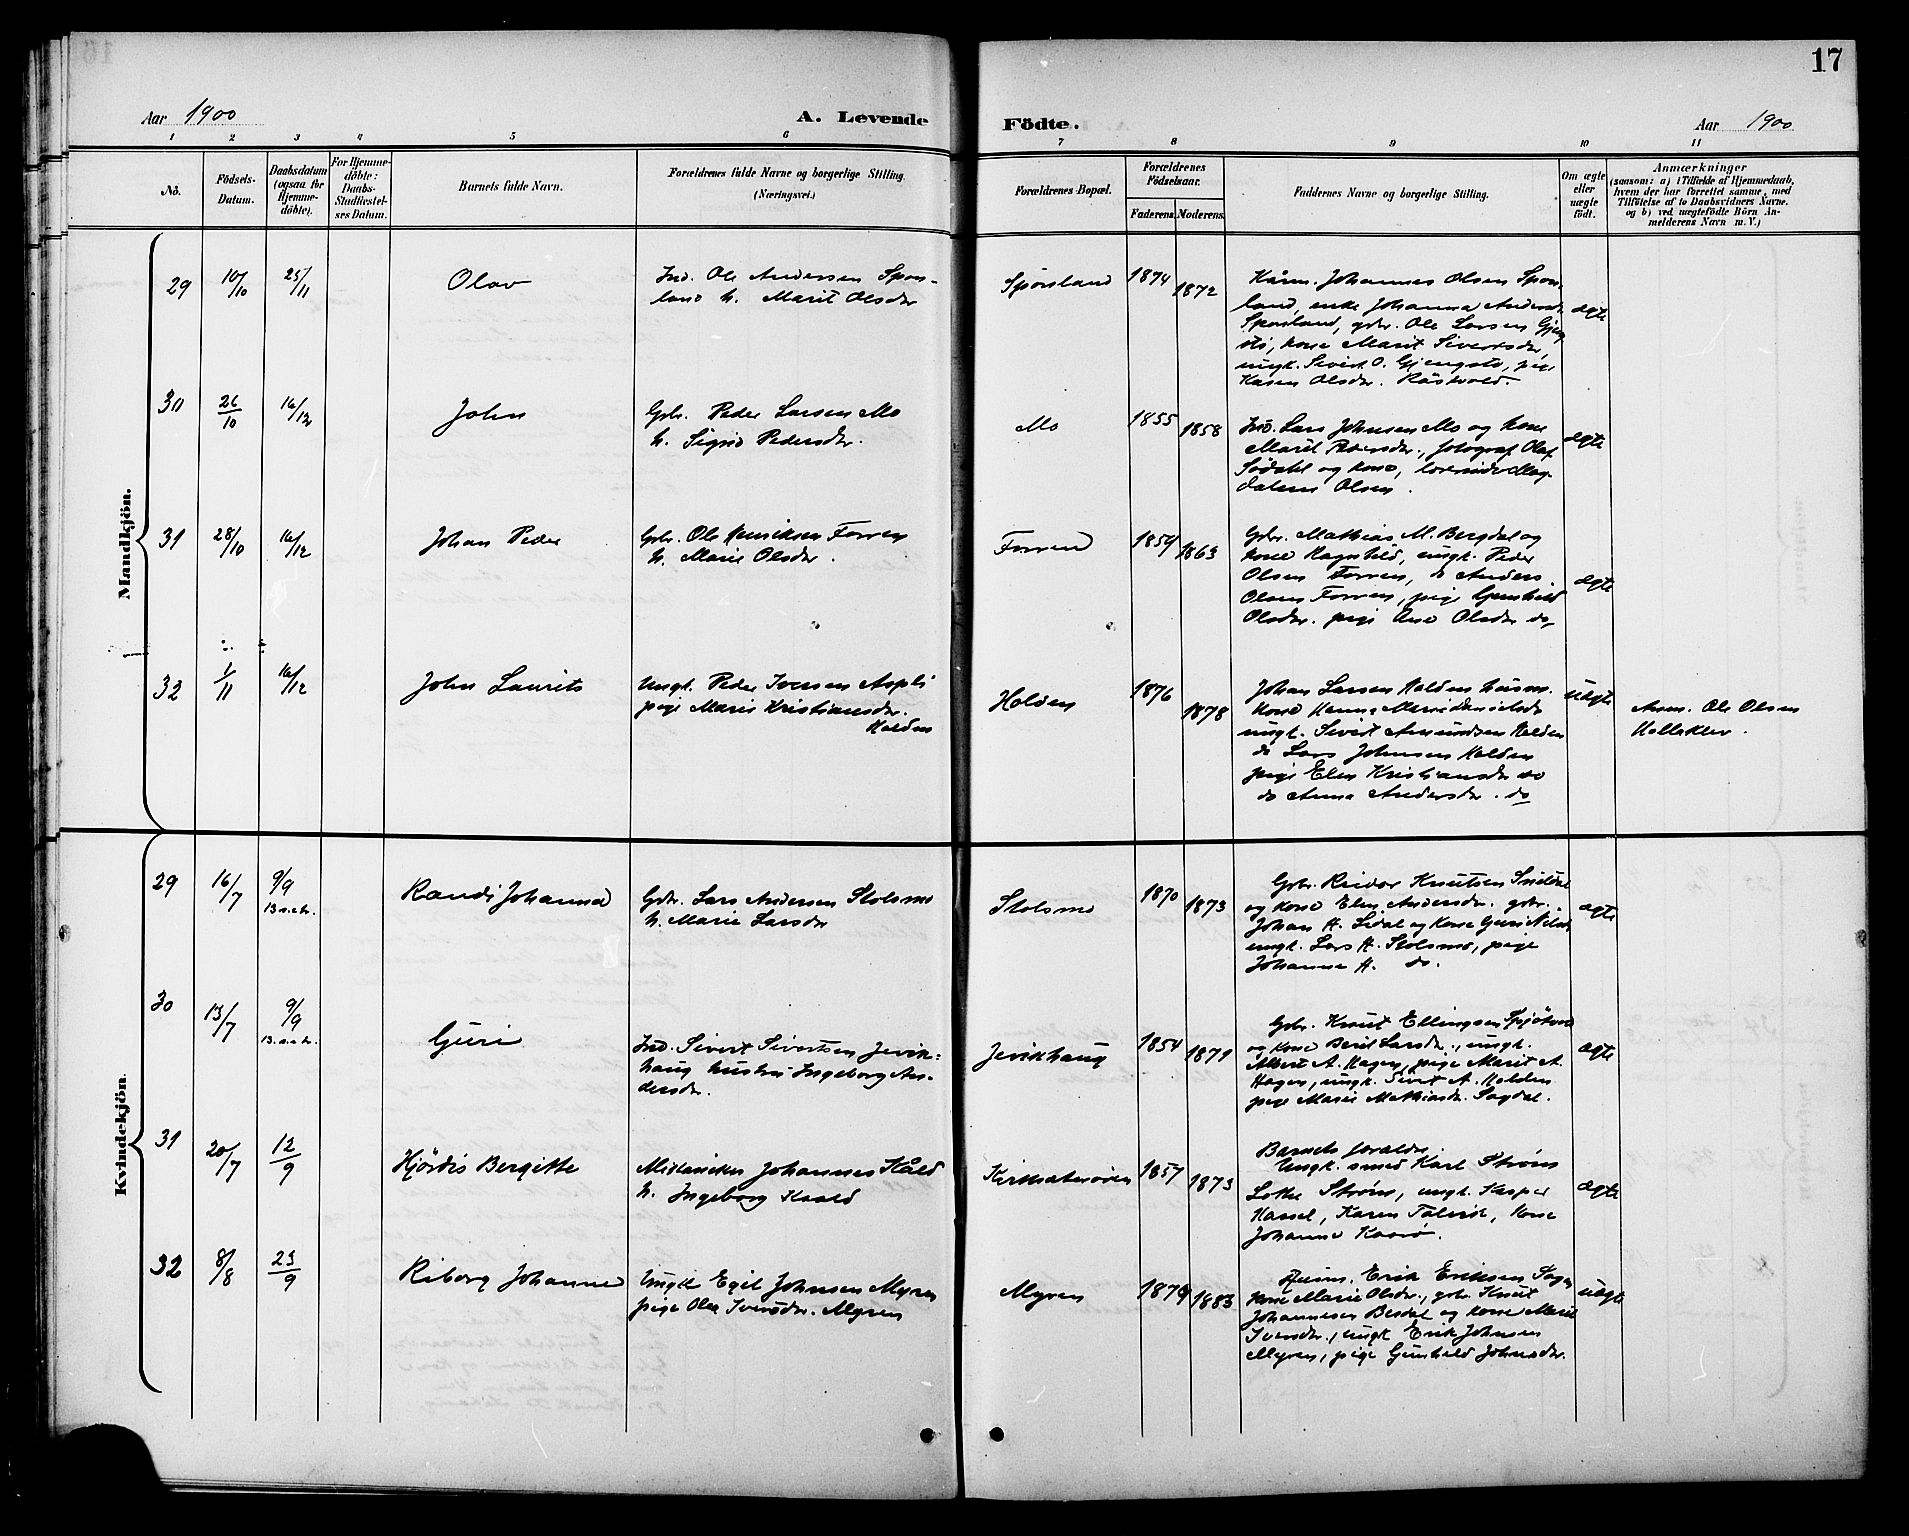 17
Aar 1900
A. Levende
Födte.
Aar 1900
1 2 3 4 5 6 7 8 9 10 11
No.
Födsels-Datum.
Daabsdatum (ogsaa for Hjemme-döbte).
For Hjemme-döbte: Daabs-Stadfæstel-ses Datum.
Barnets fulde Navn.
Forældrenes fulde Navne og borgerlige Stilling. (Næringsvei.)
Forældrenes Bopæl.
Forældrenes Födselsaar.
Faderens. Moderens.
Faddernes Navne og borgerlige Stilling.
Om ægte eller uægte födt.
Anmærkninger
(saasom: a) i Tilfælde af Hjemmedaab,
hvem der har forrettet samme, med
Tilföielse af to Daabsvidners Navne.
og b) ved uægtefödte Börn An-
melderens Navn m. V.)
Mandkjön.
29 10/10 25/11 Olav
Ind. Ole Andersen Spors-
land h. Marit Olsdr
Sporsland 1874 1872
Kårm. Johannes Olsen Spors-
land, enke Johanna Andersdr
Sporsland, gbr. Ole Larsen Gjeng-
stø, kone Marit Sivertsdr,
ungk. Sivert O. Gjengstø, pige
Karen Olsdr. Råskvold.
ægte
30 26/10 16/12 John
Gbr. Peder Larsen Mo
h. Sigrid Pedersdr.
Mo 1855 1858
Ind. Lars Johnsen Mo og kone
Marit Pedersdr., fotograf Olaf
Sødahl og kone, lærerinde Mag-
dalena Olsen.
ægte
31 28/10 16/12 Johan Peder
Gbr. Ole Henriksen Forren
h. Marie Olsdr.
Forren 1859 1863
Gbr. Mathias M. Bergdal og
kone Ragnhild, ungk. Peder
Olsen Forren, do Anders
Olsen Forren, pige Gunhild
Olsdr. pige Ane Olsdr do,
ægte
32 1/11 16/12 John Laurits
Ungk. Peder Iversen Aspli
pige Marie Kristiansdr.
Holden
Holden 1876 1878
Johan Larsen Holden husm.
kone Hanna Marie Danielsdr
ungk. Sivert Amundsen Holden
do Lars Johnsen Holden
pige Elen Kristiansdr do
do Anna Andersdr. do
uægte
Anm. Ole Olsen
Helleklev.
Kvindekjön.
29 16/7 9/9 Randi Johanna
13.s.e.tr.
Gbr. Lars Andersen Stolsmo
h. Marie Larsdr
Stolsmo 1870 1873
Gbr. Reidar Knutsen Snildal
og kone Elen Andersdr. gbr.
Johan A. Lidal og kone Guri Nilsdr
ungk. Lars A. Stolsmo, pige
Johanna A. do.
ægte
30 13/7 9/9 Guri
13.s.e.tr.
Ind. Sivert Sivertsen Jevik-
haug hustru Ingeborg An-
dersdr.
Jevikhaug 1854 1871
Gbr. Knut Ellingsen Spjøtvol
og kone Berit Larsdr., ungk.
Albert A. Hagen, pige Marit A.
Hagen, ungk. Sivert A. Holden
pige Marie Mathiasdr. Sagdal.
ægte
31 20/7 12/9 Hjördis Bergitte
Johannes Kåld
h. Ingeborg Kaald
Kirksæterøren 1857 1873
Barnets forældre.
Ungk. smed Karl Strøm
Lotte Strøm, ungk. Kasper
Hassel, Karen Talvik, kone
Johanna
ægte
32 8/8 23/9 Riborg Johanna
Ungk Egil Johnsen Myren
pige Olea Iversdr. Myren
Myren 1879 1883
Husm. Erik Eriksen Sagen
kone Marie Olsdr., gbr Knut
Johannesen Besdal og kone Marit
Iversdr., ungk Erik Johnsen
Myren, pige Gunhild Johnsdr.
uægte